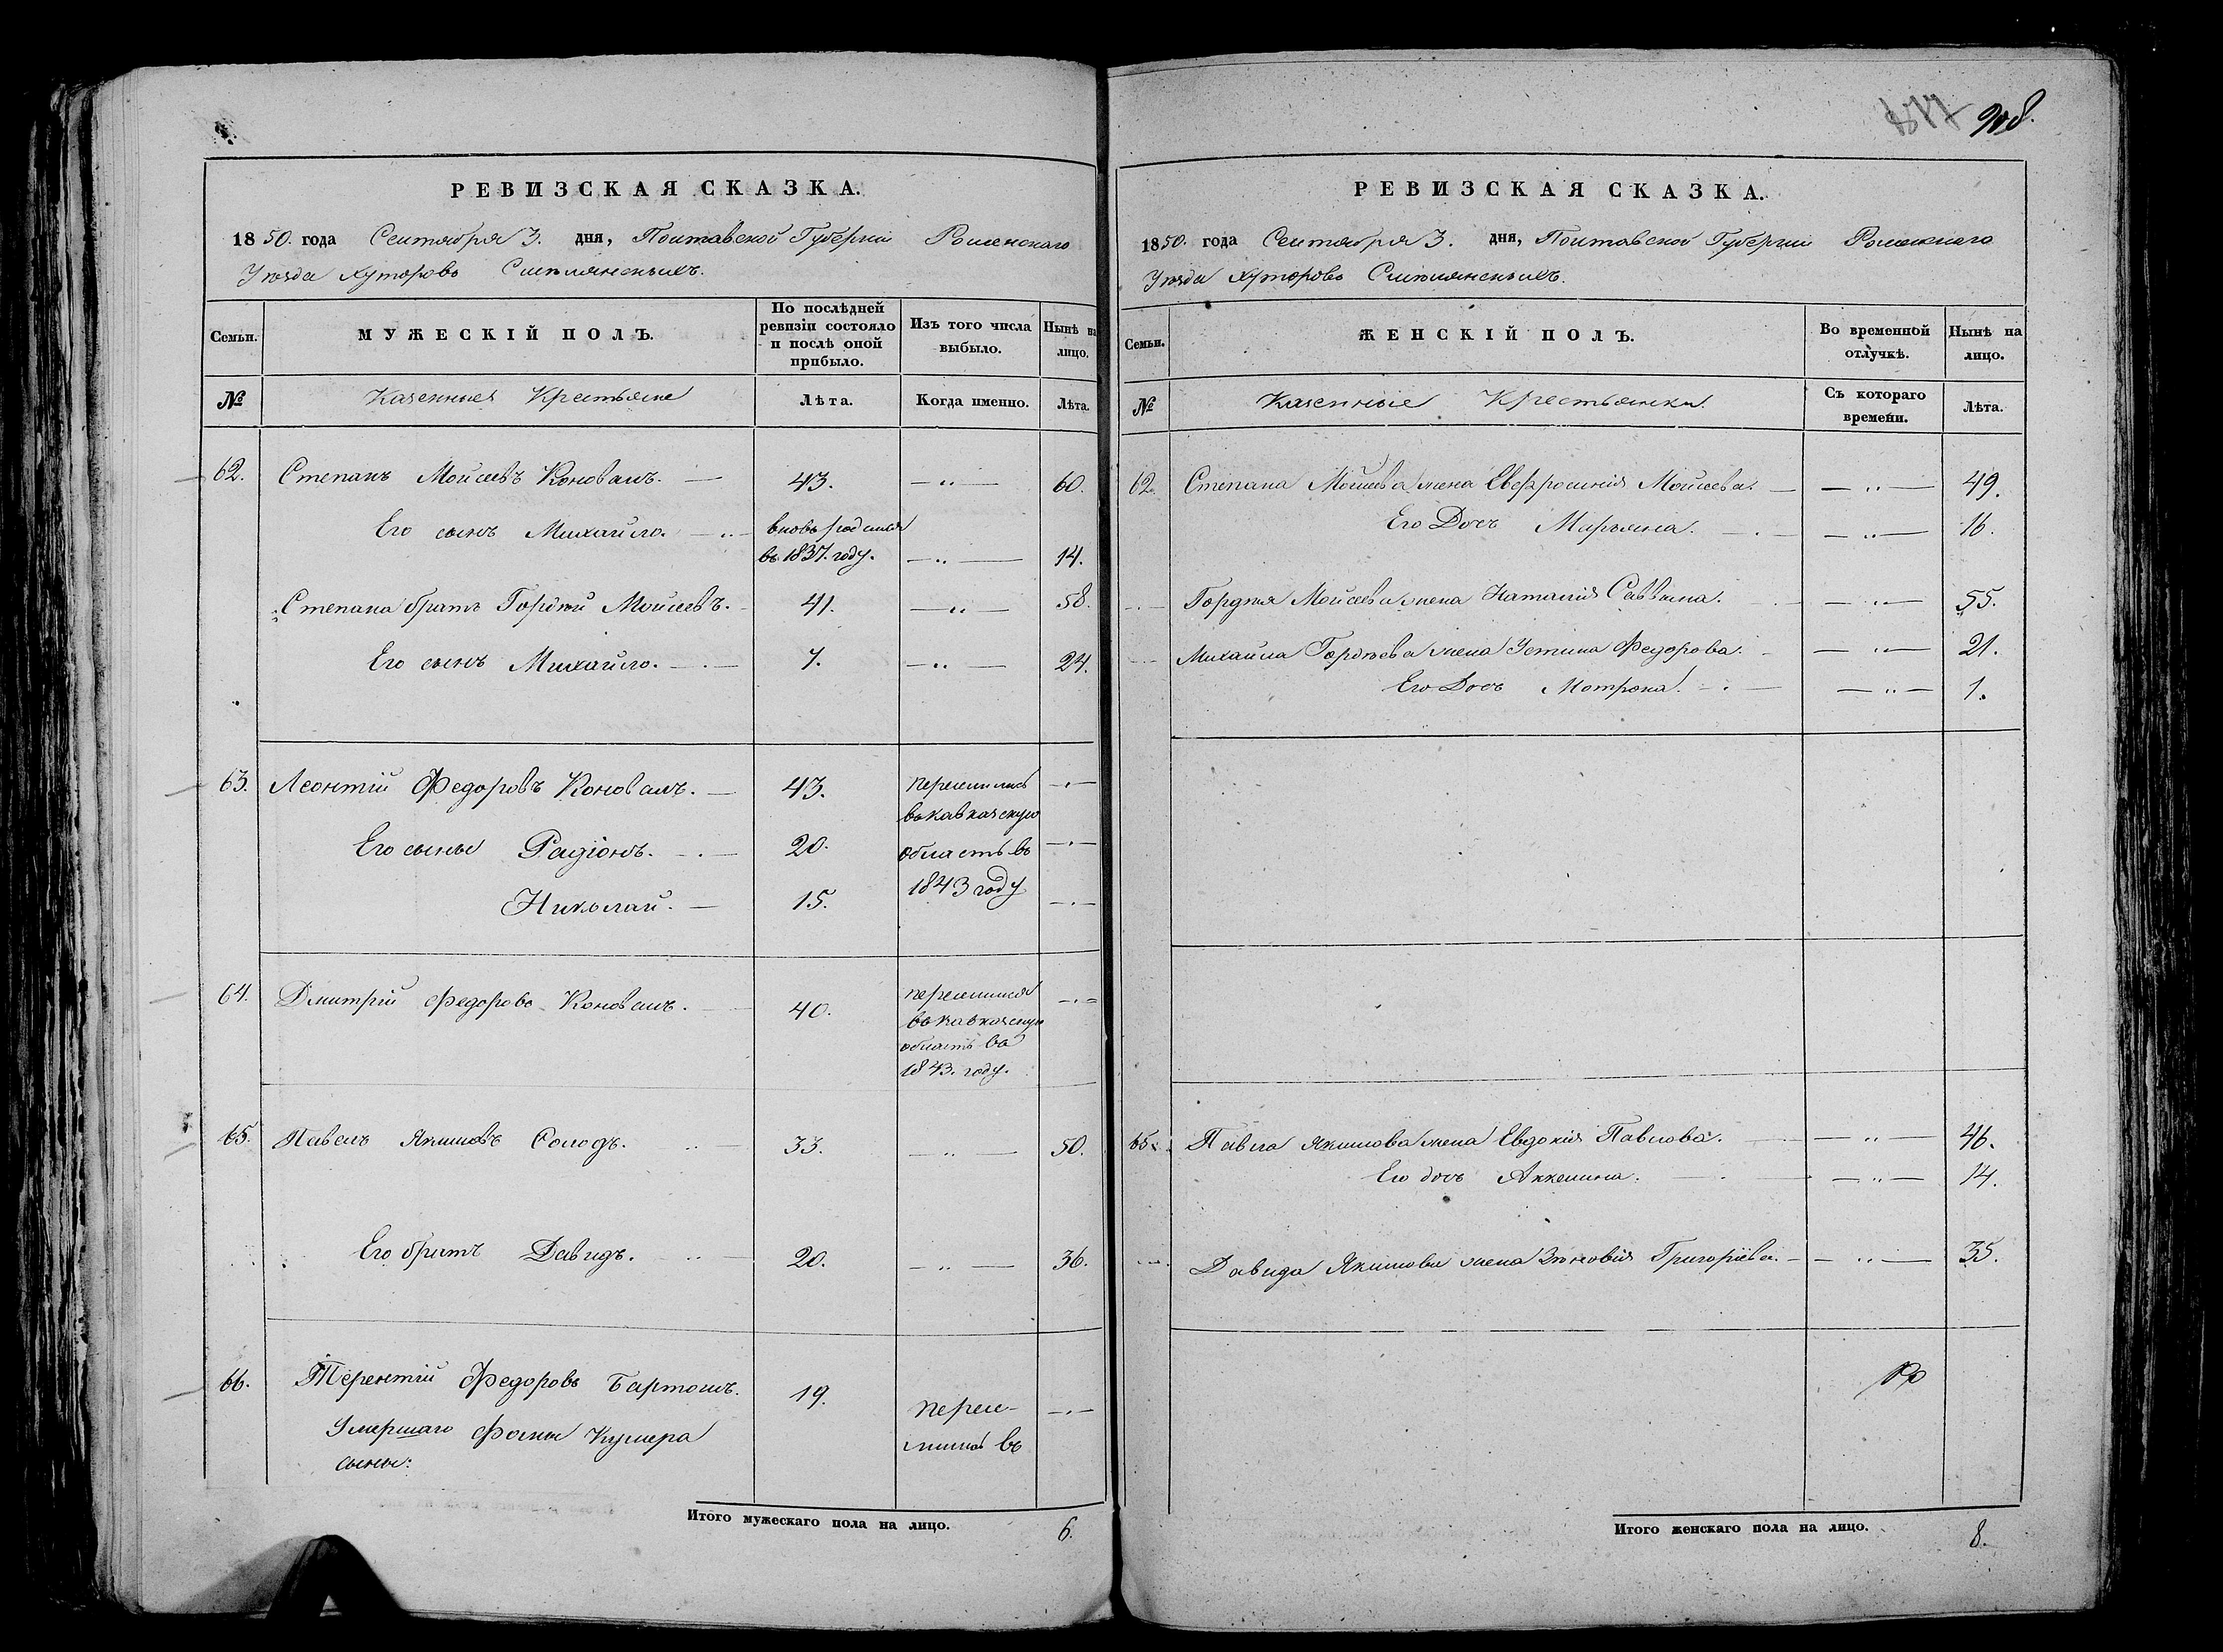 908.
РЕВИЗСКАЯ СКАЗКА.
1850. года Сентября 3. дня, Полтавской Губерніи Роменскаго
Уѣзда Хуторовъ
Семьи.
МУЖЕСКІЙ ПОЛЪ.
По послѣдней ревизіи состояло и послѣ оной прибыло.
Изъ того числа выбыло.
Нынѣ на лицо.
№
Казенные Крестьяне
Лѣта.
Когда именно.
Лѣта.
62. Степанъ Мойсеевъ Коновалъ. — 43. — „ — 60.
Его сынъ Михайло. — вновь родился
въ 1837. году. — „ — 14.
Степана братъ Гордѣй Мойсеевъ. 41. — „ — 58.
Его сынъ Михайло. — 7. — „ — 24.
63. Леонтій Федоровъ Коновалъ. — 43. переселились
въ кавказскую
Его сынье Радіонъ. — 20. область въ
1843 году
Николай. — 15.
64. Дмитрій Федоровъ Коновалъ. 40. переселился
въ кавказскую
область въ
1843. году.
65. Павелъ Якимовъ Солодъ. 33. — „ — 50.
Его братъ Давидъ. 20. — „ — 36.
66. Терентій Федоровъ 19. пересе-
Умершаго Фомы Кушера лился въ
сыны:
Итого мужескаго пола на лицо. 6.
РЕВИЗСКАЯ СКАЗКА.
1850. года Сентября 3. дня, Полтавской Губерніи Роменскаго
Уѣзда Хуторовъ
Семьи.
ЖЕНСКІЙ ПОЛЪ.
Во временной отлучкѣ.
Нынѣ на лицо.
№
Казенные Крестьянки.
Съ котораго времени.
Лѣта.
62. Степана Мойсеева жена Евфросинія Мойсеева. — „ — 49.
Его Дочь Марьяна. — „ — 16.
Гордѣя Мойсеева жена Наталія Саввина. — „ — 55.
Михайла Гордѣева жена Устина Федорова. — „ — 21.
Его Дочь Мотрона. — „ — 1.
65. Павла Якимова жена Евдокія Павлова. — „ — 46.
Его дочь Аккелина. — „ — 14.
Давида Якимова жена Зѣновія Григоріева. — „ — 35.
Итого женскаго пола на лицо. 8.